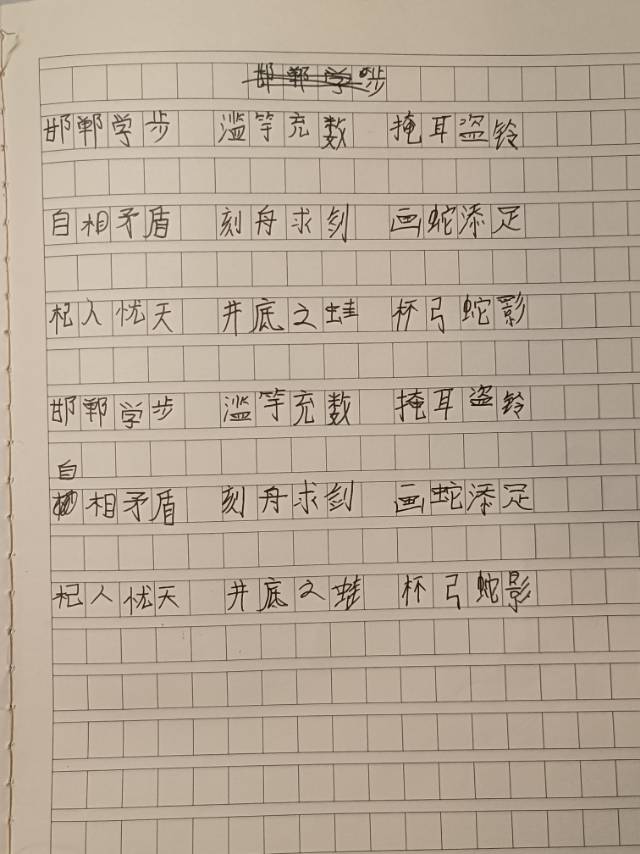 邯郸学步
邯郸学步 滥竽充数 掩耳盗铃
自相矛盾 刻舟求剑 画蛇添足
杞人忧天 井底之蛙 杯弓蛇影
邯郸学步 滥竽充数 掩耳盗铃
自相矛盾 刻舟求剑 画蛇添足
杞人忧天 井底之蛙 杯弓蛇影